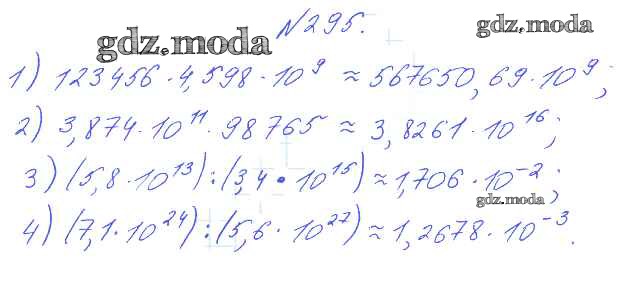 №295.
gdz.moda
gdz.moda
1) 123456 · 4,598 · 10⁹ ≈ 567650,69 · 10⁹;
2) 3,874 · 10¹¹ · 98765 ≈ 3,8261 · 10¹⁶;
3) (5,8 · 10¹³) : (3,4 · 10¹⁵) ≈ 1,706 · 10⁻²;
gdz.moda
4) (7,1 · 10²⁴) : (5,6 · 10²⁷) ≈ 1,2678 · 10⁻³.